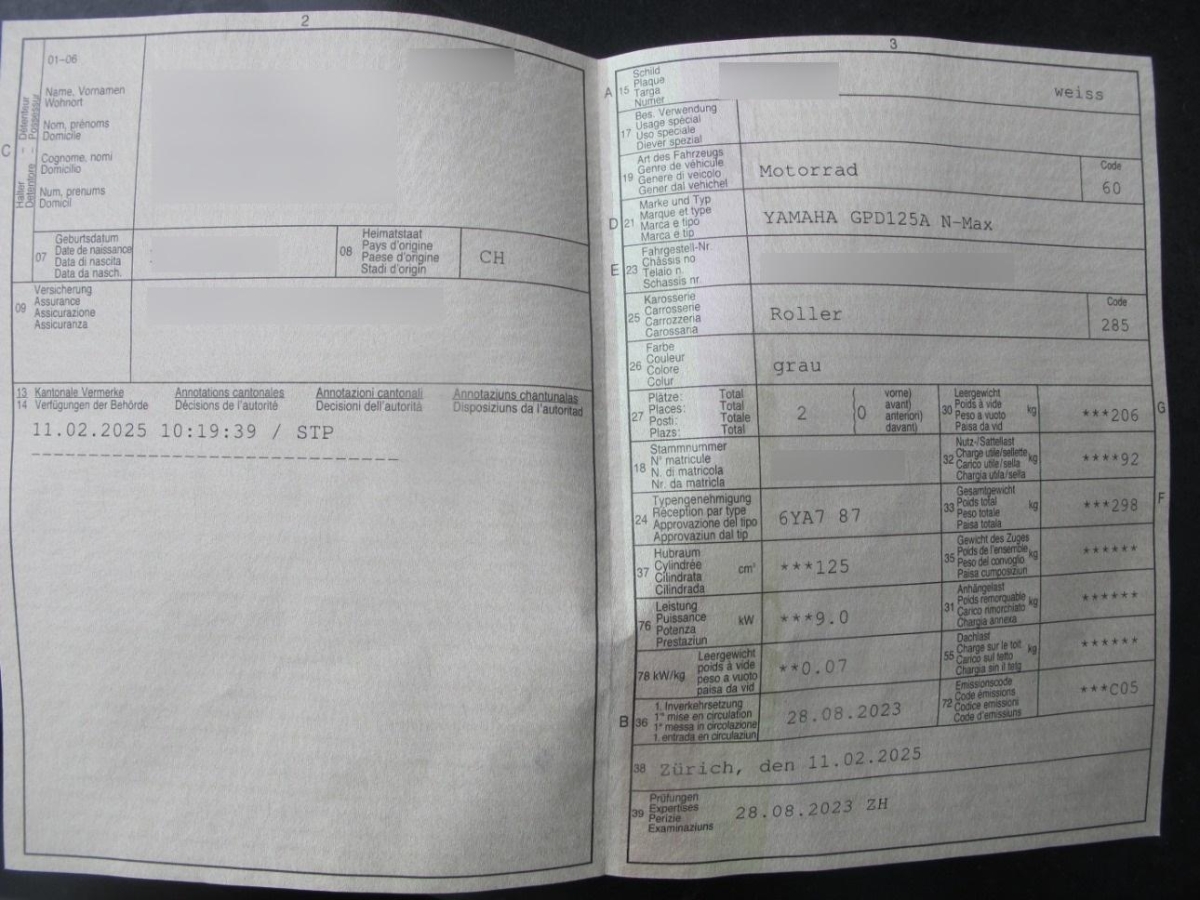 2
01-06
C
Halter - Détenteur
Detentore - Possessur
Name, Vornamen
Wohnort
Nom, prénoms
Domicile
Cognome, nomi
Domicilio
Num, prenums
Domicil
07
Geburtsdatum
Date de naissance
Data di nascita
Data da nasch.
08
Heimatstaat
Pays d'origine
Paese d'origine
Stadi d'origin
CH
09
Versicherung
Assurance
Assicurazione
Assicuranza
13 Kantonale Vermerke Annotations cantonales Annotazioni cantonali Annotaziuns chantunalas
14 Verfügungen der Behörde Décisions de l'autorité Decisioni dell'autorità Disposiziuns da l'autoritad
11.02.2025 10:19:39 / STP
3
A 15
Schild
Plaque
Targa
Numer
weiss
17
Bes. Verwendung
Usage spécial
Uso speciale
Diever spezial
19
Art des Fahrzeugs
Genre de véhicule
Genere di veicolo
Gener dal vehichel
Motorrad
Code
60
D 21
Marke und Typ
Marque et type
Marca e tipo
Marca e tip
YAMAHA GPD125A N-Max
E 23
Fahrgestell-Nr.
Châssis no
Telaio n.
Schassis nr.
25
Karosserie
Carrosserie
Carrozzeria
Carossaria
Roller
Code
285
26
Farbe
Couleur
Colore
Colur
grau
27
Plätze: Total
Places: Total
Posti: Totale
Plazs: Total
2
(0
vorne)
avant)
anteriori)
davant)
30
Leergewicht
Poids à vide
Peso a vuoto
Paisa da vid
kg
***206
G
18
Stammnummer
N° matricule
N. di matricola
Nr. da matricla
32
Nutz-/Sattellast
Charge utile/sellette
Carico utile/sella
Chargia utila/sella
kg
****92
24
Typengenehmigung
Réception par type
Approvazione del tipo
Approvaziun dal tip
6YA7 87
33
Gesamtgewicht
Poids total
Peso totale
Paisa totala
kg
***298
F
37
Hubraum
Cylindrée
Cilindrata
Cilindrada
cm³
***125
35
Gewicht des Zuges
Poids de l'ensemble
Peso del convoglio
Paisa cumposiziun
kg
******
76
Leistung
Puissance
Potenza
Prestaziun
kW
***9.0
31
Anhängelast
Poids remorquable
Carico rimorchiato
Chargia annexa
kg
******
78 kW/kg
Leergewicht
poids à vide
peso a vuoto
paisa da vid
**0.07
55
Dachlast
Charge sur le toit
Carico sul tetto
Chargia sin il tetg
kg
******
B 36
1. Inverkehrsetzung
1re mise en circulation
1a messa in circolazione
1. entrada en circulaziun
28.08.2023
72
Emissionscode
Code émissions
Codice emissioni
Code d'emissiuns
***C05
38 Zürich, den 11.02.2025
39
Prüfungen
Expertises
Perizie
Examinaziuns
28.08.2023 ZH